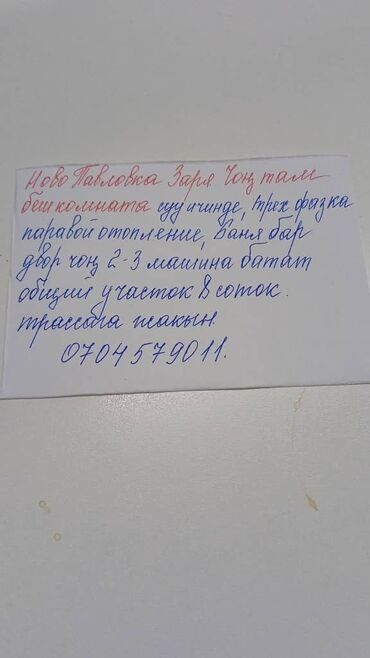 Ново Павловка Заря Чоң там
беш комната суу ичинде, трех фазка
паравой отопление, Баня бар
двор чоң 2-3 машина батат
общий участок 8 соток.
трассага жакын.
0704579011.